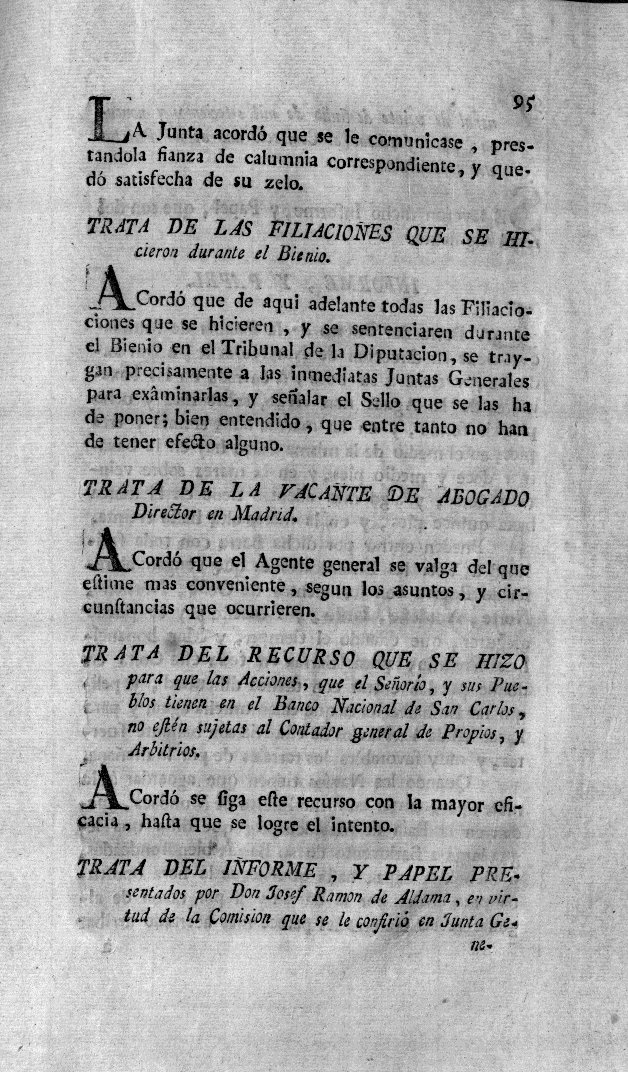 95
LA Junta acordó que se le comunicase , pres-
tandola fianza de calumnia correspondiente, y que-
dó satisfecha de su zelo.
TRATA DE LAS FILIACIOÑES QUE SE HI-
cieron durante el Bienio.
ACordó que de aqui adelante todas las Filiacio-
ciones que se hicieren , y se sentenciaren durante
el Bienio en el Tribunal de la Diputacion, se tray-
gan precisamente a las inmediatas Juntas Generales
para exâminarlas, y señalar el Sello que se las ha
de poner; bien entendido, que entre tanto no han
de tener efecto alguno.
TRATA DE LA VACAÑTE DE ABOGADO
Director en Madrid.
ACordó que el Agente general se valga del que
eſtime mas conveniente, segun los asuntos, y cir-
cunſtancias que ocurrieren.
TRATA DEL RECURSO QUE SE HIZO
para que las Acciones, que el Señorio, y sus Pue-
blos tienen en el Banco Nacional de San Carlos,
no eſtén sujetas al Contador general de Propios, y
Arbitrios.
ACordó se ſiga eſte recurso con la mayor efi-
cacia, haſta que se logre el intento.
TRATA DEL IÑFORME , Y PAPEL PRE-
sentados por Don Josef Ramon de Aldama, en vir-
tud de la Comision que se le confirió en Junta Ge-
ne-